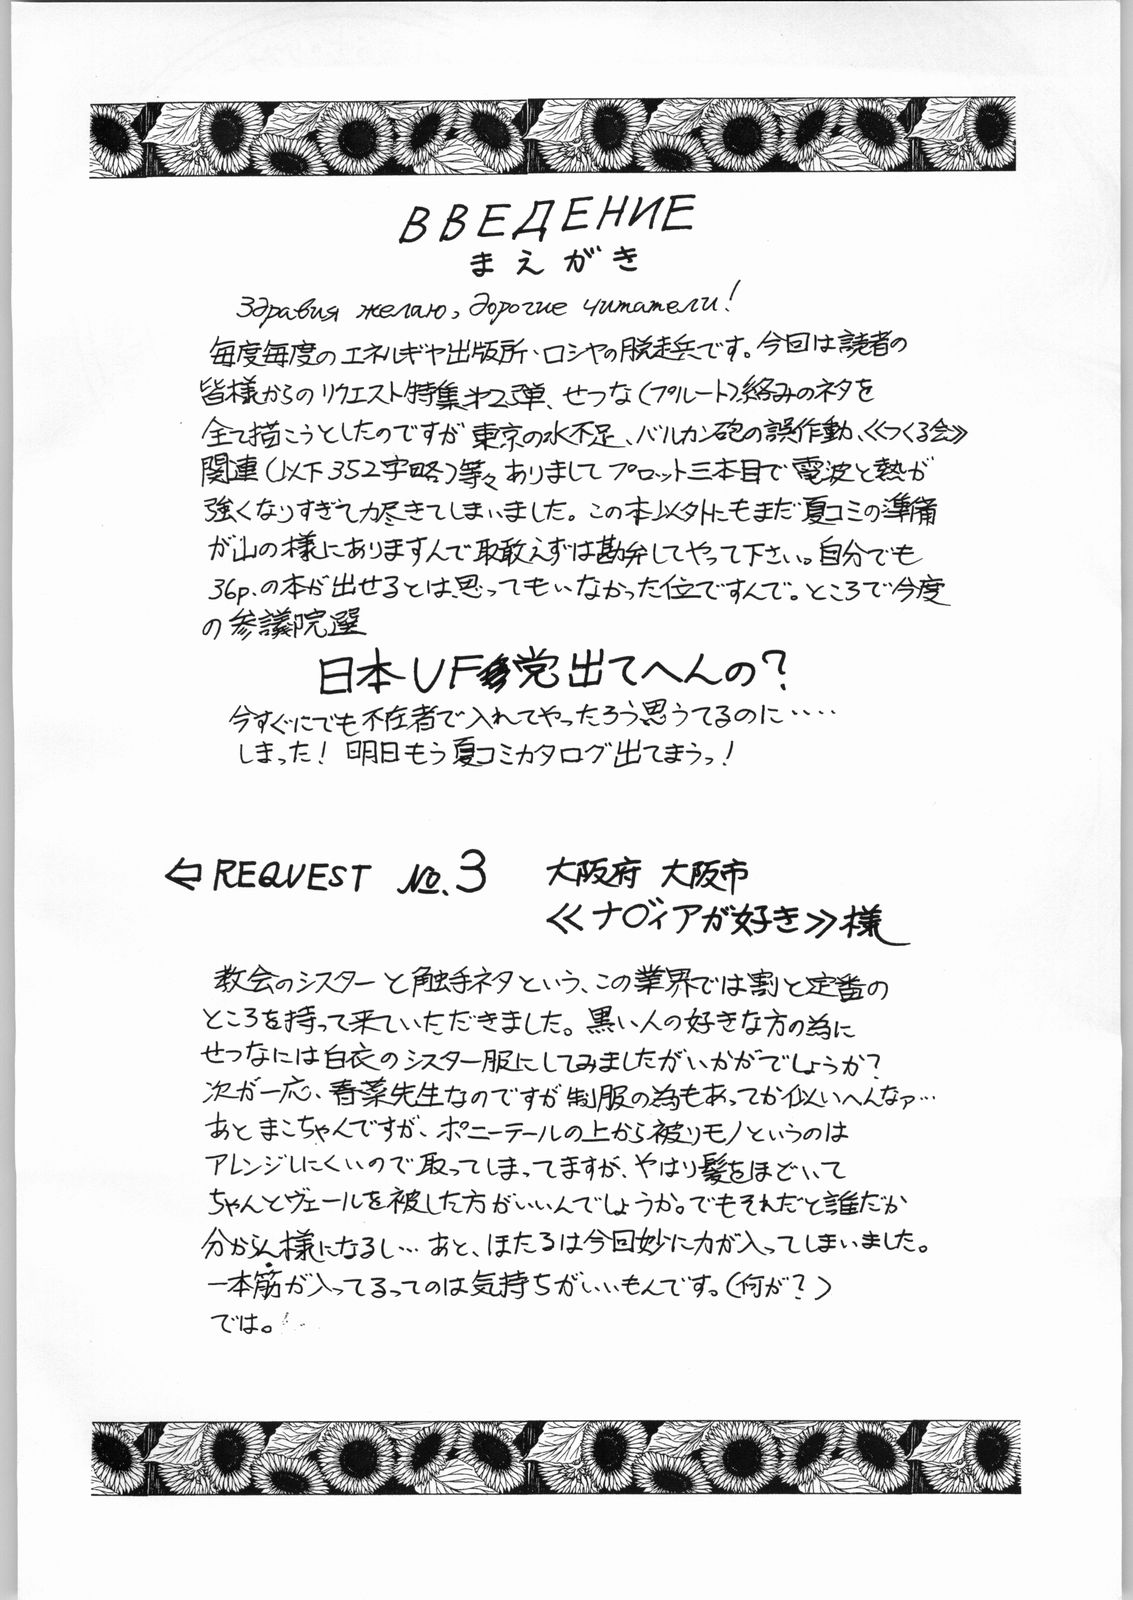 ВВЕДЕНИЕ
まえがき
Здравия желаю, дорогие читатели!
毎度毎度のエネルギヤ出版所・ロシヤの脱走兵です。今回は読者の
皆様からのリクエスト特集第2弾、せつな(プルート)絡みのネタを
全て描こうとしたのですが東京の水不足、バルカン砲の誤作動、≪つくる会≫
関連(以下352字略)等々ありましてプロット三本目で電波と熱が
強くなりすぎて力尽きてしまいました。この本以外にもまだ夏コミの準備
が山の様にありますんで取敢えずは勘弁してやって下さい。自分でも
36p.の本が出せるとは思ってもいなかった位ですんで。ところで今度
の参議院選
日本UF党出てへんの?
今すぐにでも不在者で入れてやったろう思うてるのに‥‥
しまった! 明日もう夏コミカタログ出てまうっ!
⇦REQUEST №.3 大阪府 大阪市
≪ナ〇ィアが好き≫様
教会のシスターと触手ネタという、この業界では割と定番の
ところを持って来ていただきました。黒い人の好きな方の為に
せつなには白衣のシスター服にしてみましたがいかがでしょうか?
次が一応、春菜先生なのですが制服の為もあってか似いへんなァ…
あとまこちゃんですが、ポニーテールの上から被りモノというのは
アレンジしにくいので取ってしまってますが、やはり髪をほどいて
ちゃんとヴェールを被した方がいいんでしょうか。でもそれだと誰だか
分からん様になるし…あと、ほたるは今回妙に力が入ってしまいました。
一本筋が入ってるってのは気持ちがいいもんです。(何が?)
では。